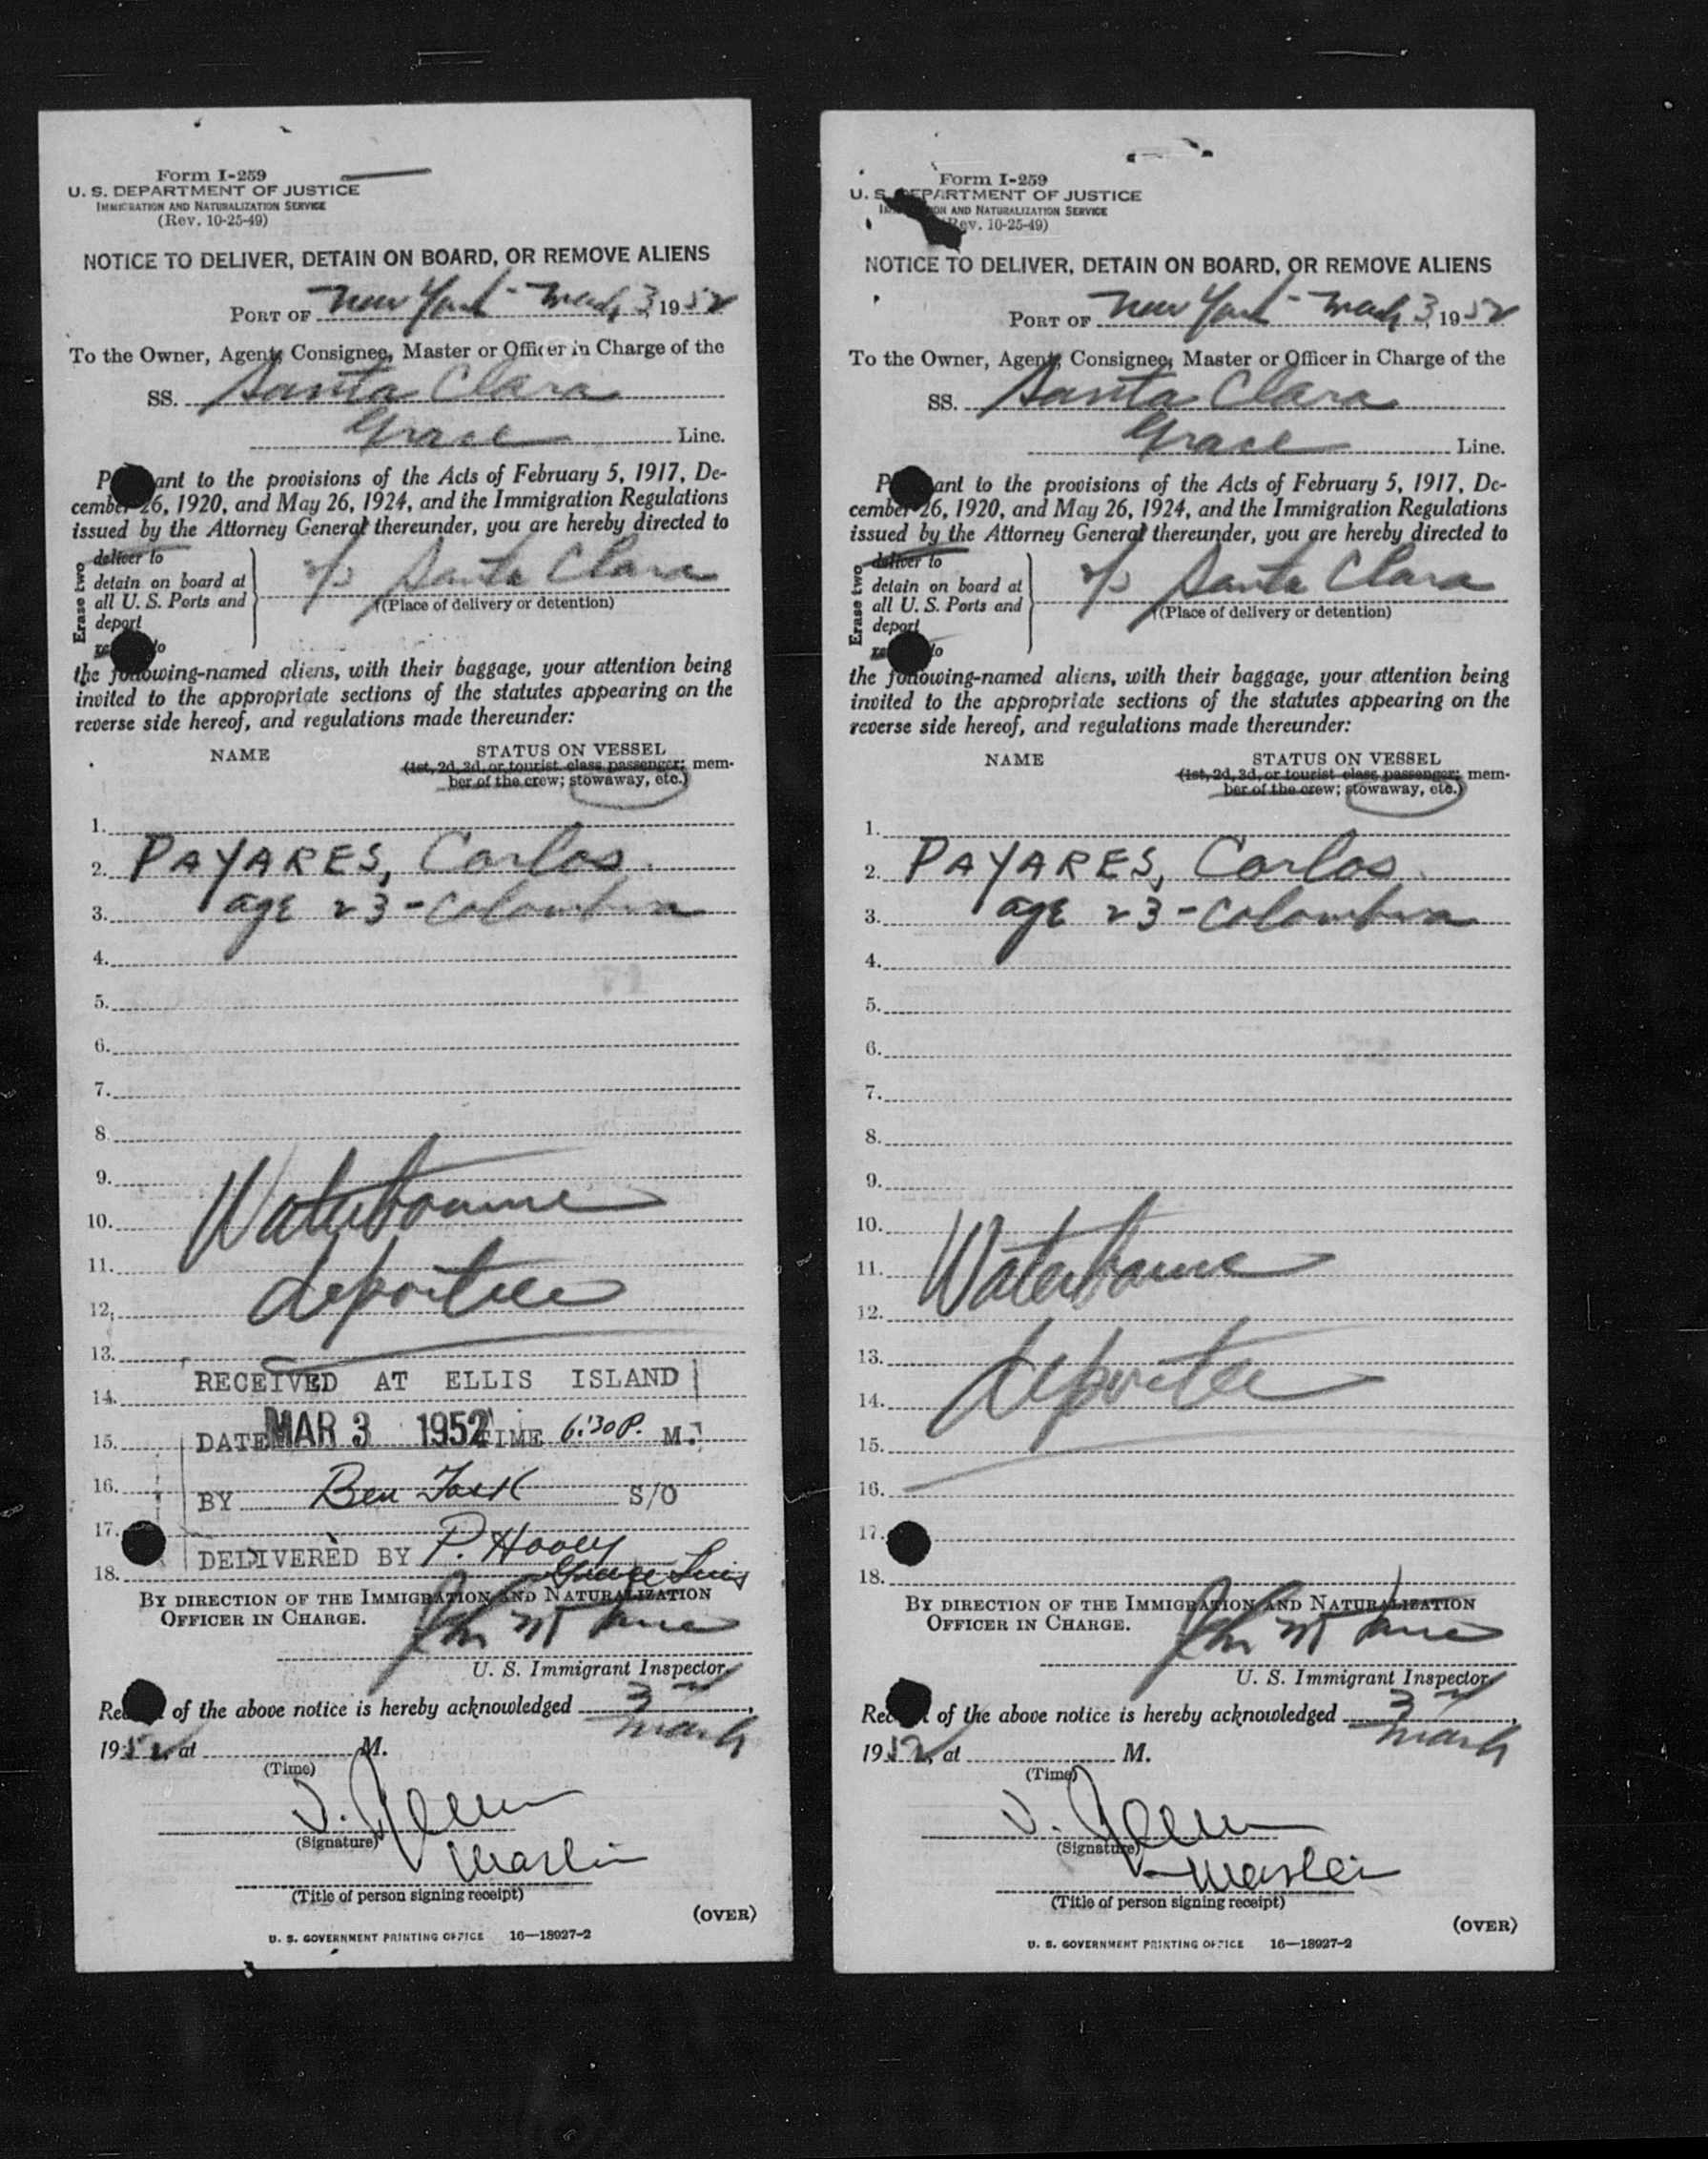 Form I-259
U. S. DEPARTMENT OF JUSTICE
IMMIGRATION AND NATURALIZATION SERVICE
(Rev. 10-25-49)
NOTICE TO DELIVER, DETAIN ON BOARD, OR REMOVE ALIENS
PORT OF New York - March 3, 1952
To the Owner, Agent, Consignee, Master or Officer in Charge of the
SS. Santa Clara
Grace Line.
P ant to the provisions of the Acts of February 5, 1917, De-
cember 26, 1920, and May 26, 1924, and the Immigration Regulations
issued by the Attorney General thereunder, you are hereby directed to
Erase two
deliver to
detain on board at
all U. S. Ports and
deport
to
Santa Clara
(Place of delivery or detention)
the following-named aliens, with their baggage, your attention being
invited to the appropriate sections of the statutes appearing on the
reverse side hereof, and regulations made thereunder:
NAME STATUS ON VESSEL
(1st, 2d, 3d, or tourist class passenger; mem-
ber of the crew; stowaway, etc.)
1.
2. PAYARES, Carlos
3. age 23 - Colombia
4.
5.
6.
7.
8.
9.
10. Waterbourne
11.
12. deportee
13.
RECEIVED AT ELLIS ISLAND
14.
15. DATE MAR 3 1952 TIME 6:30 P. M.
16.
BY Ben S/O
17.
DELIVERED BY P.
18. Grace Lines
BY DIRECTION OF THE IMMIGRATION AND NATURALIZATION
OFFICER IN CHARGE.
U. S. Immigrant Inspector.
Rec t of the above notice is hereby acknowledged 3rd March,
1952, at M.
(Time)
(Signature)
Master
(Title of person signing receipt)
(OVER)
U. S. GOVERNMENT PRINTING OFFICE 16—18927-2
Form I-259
U. S. DEPARTMENT OF JUSTICE
IMMIGRATION AND NATURALIZATION SERVICE
(Rev. 10-25-49)
NOTICE TO DELIVER, DETAIN ON BOARD, OR REMOVE ALIENS
PORT OF New York - March 3, 1952
To the Owner, Agent, Consignee, Master or Officer in Charge of the
SS. Santa Clara
Grace Line.
P ant to the provisions of the Acts of February 5, 1917, De-
cember 26, 1920, and May 26, 1924, and the Immigration Regulations
issued by the Attorney General thereunder, you are hereby directed to
Erase two
deliver to
detain on board at
all U. S. Ports and
deport
to
Santa Clara
(Place of delivery or detention)
the following-named aliens, with their baggage, your attention being
invited to the appropriate sections of the statutes appearing on the
reverse side hereof, and regulations made thereunder:
NAME STATUS ON VESSEL
(1st, 2d, 3d, or tourist class passenger; mem-
ber of the crew; stowaway, etc.)
1.
2. PAYARES, Carlos
3. age 23 - Colombia
4.
5.
6.
7.
8.
9.
10.
11. Waterbourne
12.
13.
14. deportee
15.
16.
17.
18.
BY DIRECTION OF THE IMMIGRATION AND NATURALIZATION
OFFICER IN CHARGE.
U. S. Immigrant Inspector.
Rec t of the above notice is hereby acknowledged 3rd March,
1952, at M.
(Time)
(Signature)
Master
(Title of person signing receipt)
(OVER)
U. S. GOVERNMENT PRINTING OFFICE 16—18927-2